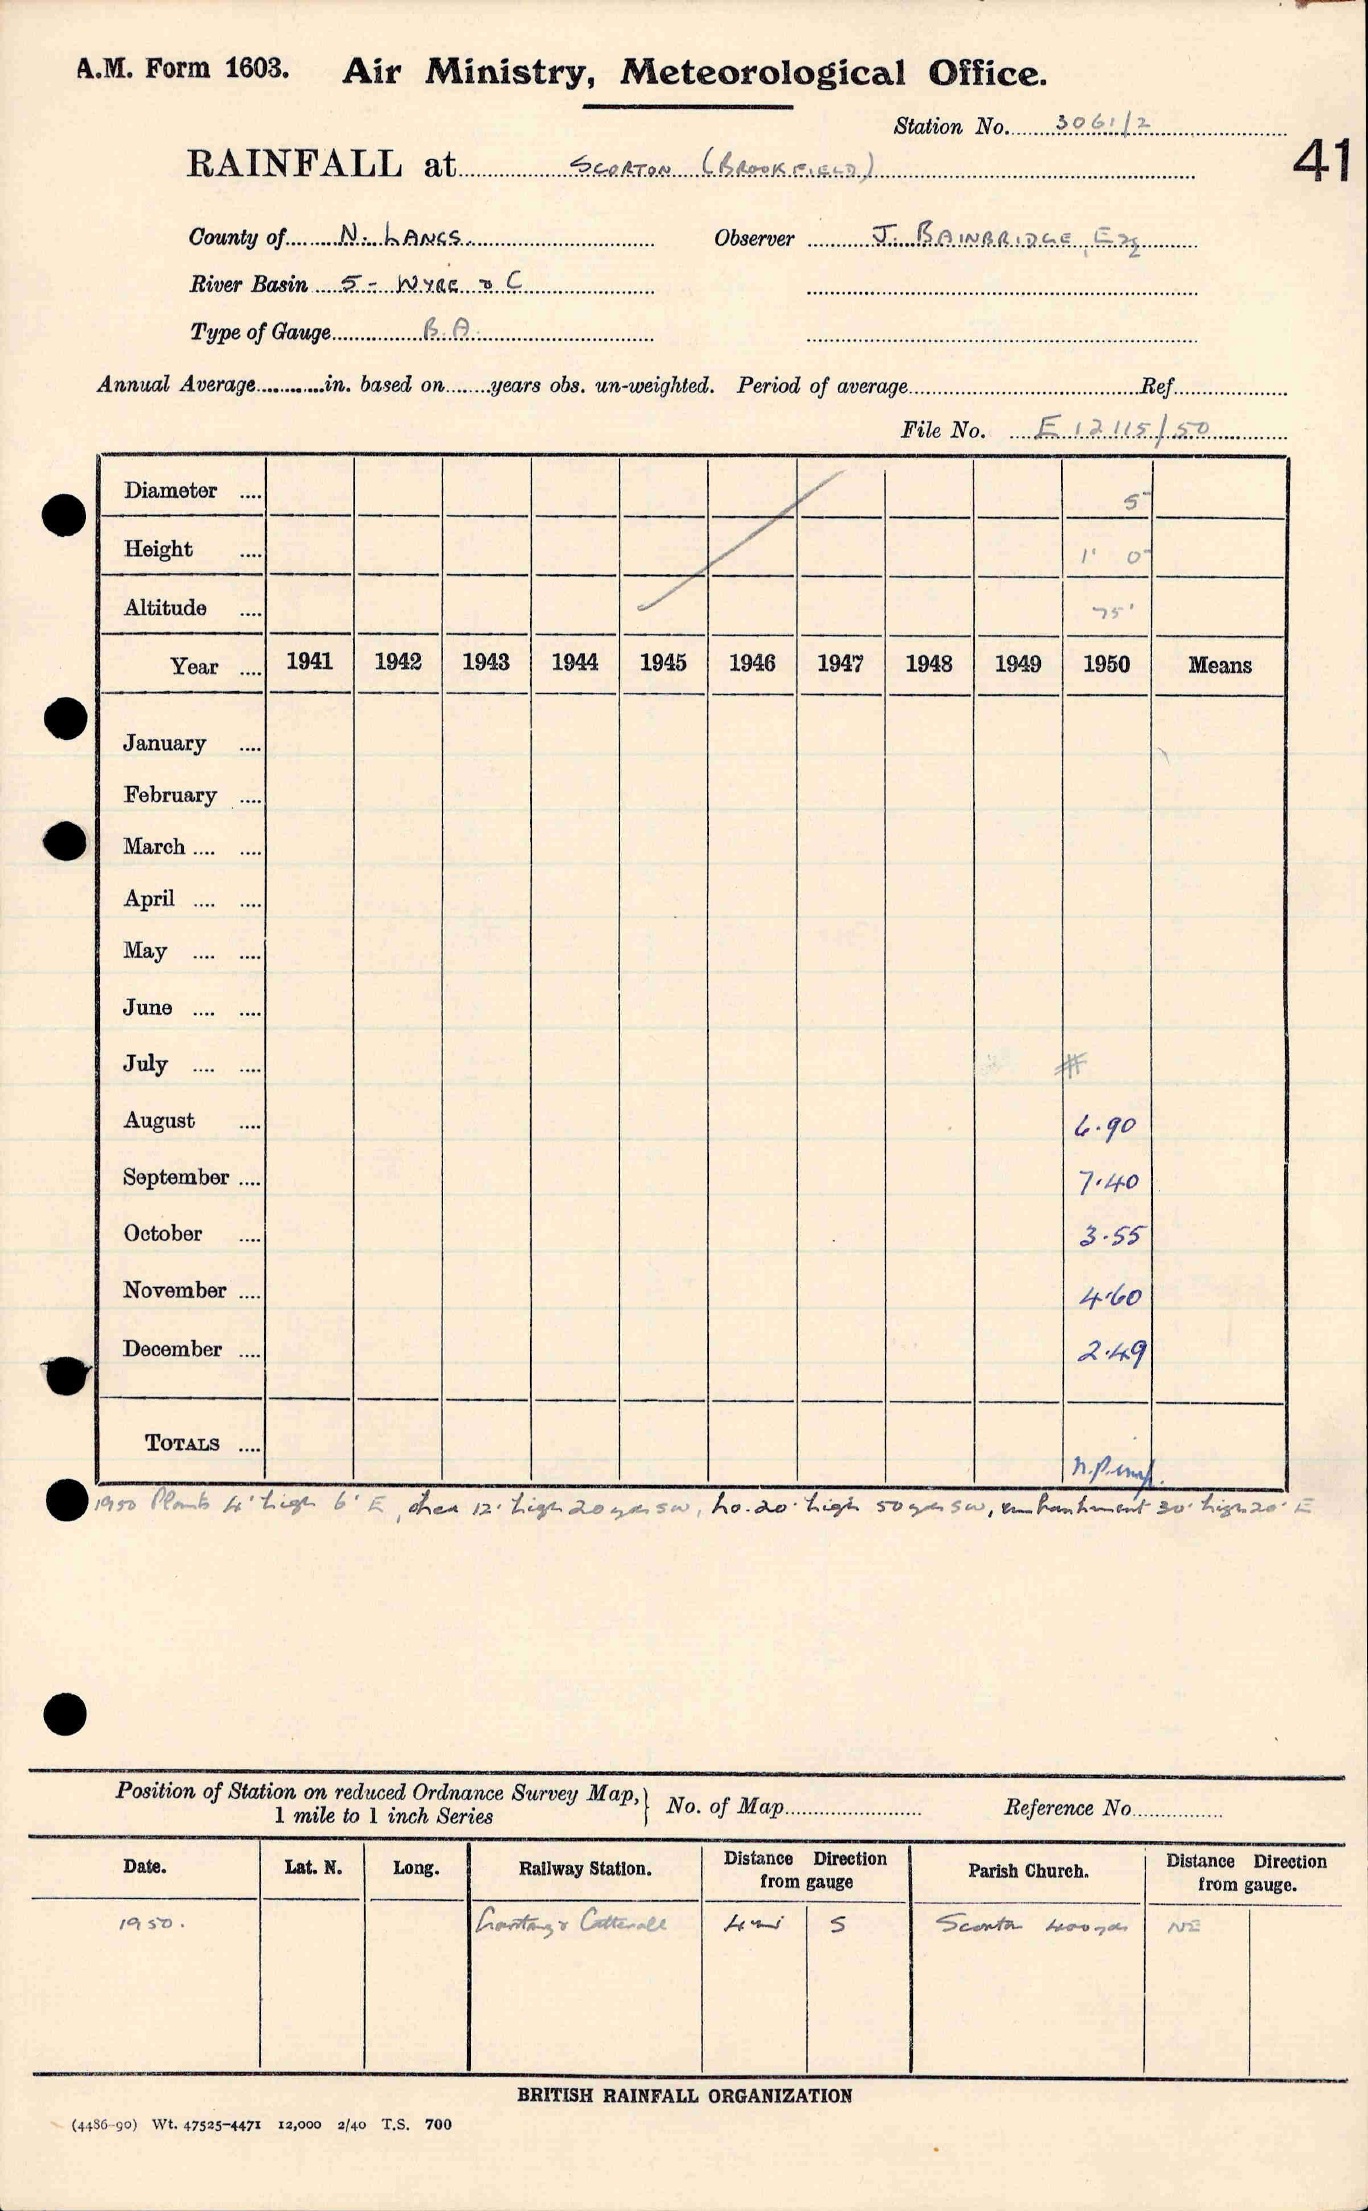 A.M. Form 1603. Air Ministry, Meteorological Office.
Station No. 3061/2
41
RAINFALL at SCORTON (BROOKFIELD)
County of N. LANCS. Observer J. BAINBRIDGE, Esq
River Basin 5 - WYRE & C
Type of Gauge B.A.
Annual Average............in. based on........years obs. un-weighted. Period of average........Ref........
File No. E 12115/50
Diameter .... 5"
Height .... 1' 0"
Altitude .... 75'
Year .... 1941 1942 1943 1944 1945 1946 1947 1948 1949 1950 Means
January ....
February ....
March .... ....
April .... ....
May .... ....
June .... ....
July .... .... #
August .... 6.90
September .... 7.40
October .... 3.55
November .... 4.60
December .... 2.49
TOTALS .... n.p.
1950 Plants 4' high 6' E, 12' high 20 yds SW, ho. 20' high 50 yds SW, embankment 30' high 20' E
Position of Station on reduced Ordnance Survey Map,} No. of Map........ Reference No........
1 mile to 1 inch Series
Date. Lat. N. Long. Railway Station. Distance Direction from gauge Parish Church. Distance Direction from gauge.
1950. & Catterall 4 mi S Scorton 400 yds NE
BRITISH RAINFALL ORGANIZATION
(4486-90) Wt. 47525-4471 12,000 2/40 T.S. 700